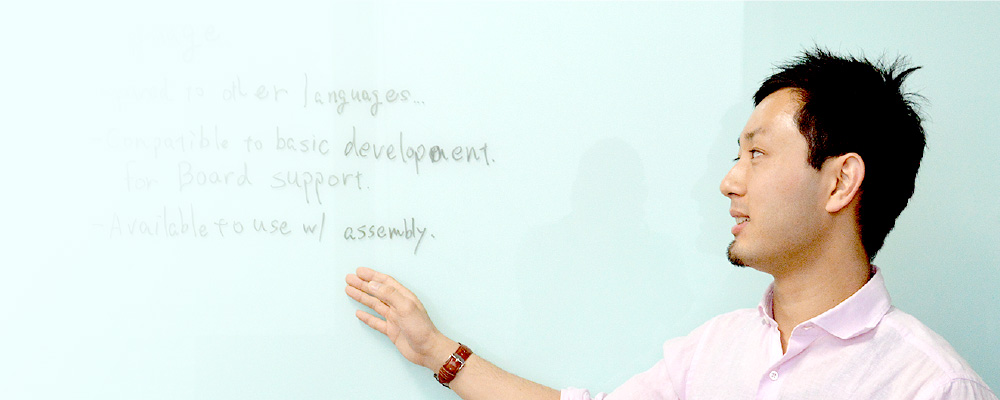 to other languages...
- Compatible to basic development.
for Board support.
- Available to use w/ assembly.